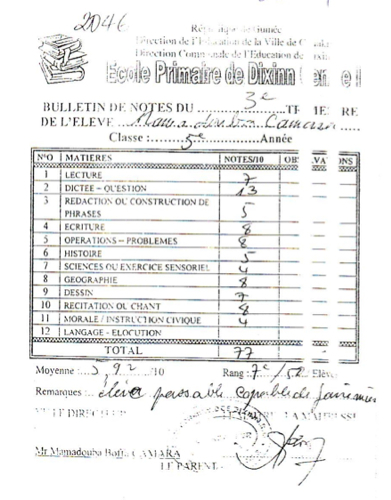 2046
République de Guinée
Direction de l'Education de la Ville de Conakry
Direction Communale de l'Education de Dixinn
Ecole Primaire de Dixinn Centre I
BULLETIN DE NOTES DU 3e TRIMESTRE
DE L'ELEVE Camara
Classe : 5e Année
N°O MATIERES NOTES/10 OBSERVATIONS
1 LECTURE 7
2 DICTEE – QUESTION 13
3 REDACTION OU CONSTRUCTION DE PHRASES 5
4 ECRITURE 8
5 OPERATIONS – PROBLEMES 8
6 HISTOIRE 5
7 SCIENCES OU EXERCICE SENSORIEL 4
8 GEOGRAPHIE 8
9 DESSIN 7
10 RECITATION OU CHANT 8
11 MORALE / INSTRUCTION CIVIQUE 4
12 LANGAGE - ELOCUTION
TOTAL 77
Moyenne : 5,92 /10 Rang : 7e/50 Elèves
Remarques : élève passable capable de faire mieux
LE DIRECTEUR LA MAITRESSE
Mr Mamadouba CAMARA
LE PARENT